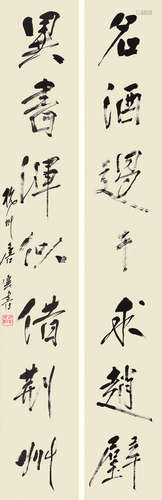 名酒過于求趙璧
異書渾似借荊州
杭州唐雲書